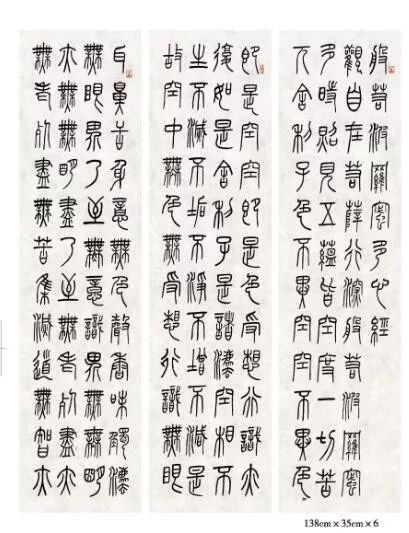 般若波羅蜜多心經
觀自在菩薩行深般若波羅蜜
多時照見五蘊皆空度一切苦
厄舍利子色不異空空不異色
即是空空即是色受想行識亦
復如是舍利子是諸法空相不
生不滅不垢不淨不增不減是
故空中無色無受想行識無眼
耳鼻舌身意無色聲香味觸法
無眼界乃至無意識界無無明
亦無無明盡乃至無老死盡亦
無老死盡無苦集滅道無智亦
138cm × 35cm × 6